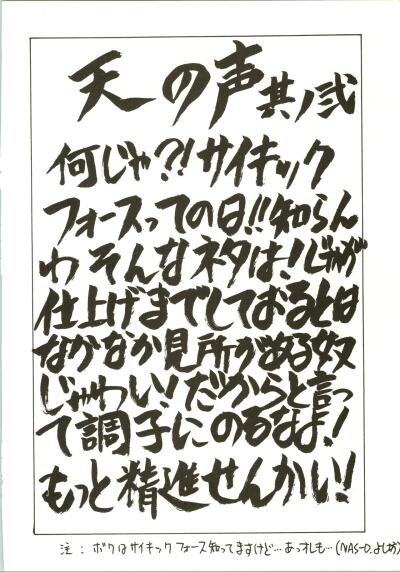 天の声 其ノ弐
何じゃ?!サイキック
フォースっての日!!知らん
わそんなネタは!じゃが
仕上げまでしておるとは
なかなか見所がある奴
じゃわい!だからと言っ
て調子にのるなよ!
もっと精進せんかい!
注:ボクはサイキックフォース知ってますけど…あっオレも…(NAS-O.よしお)